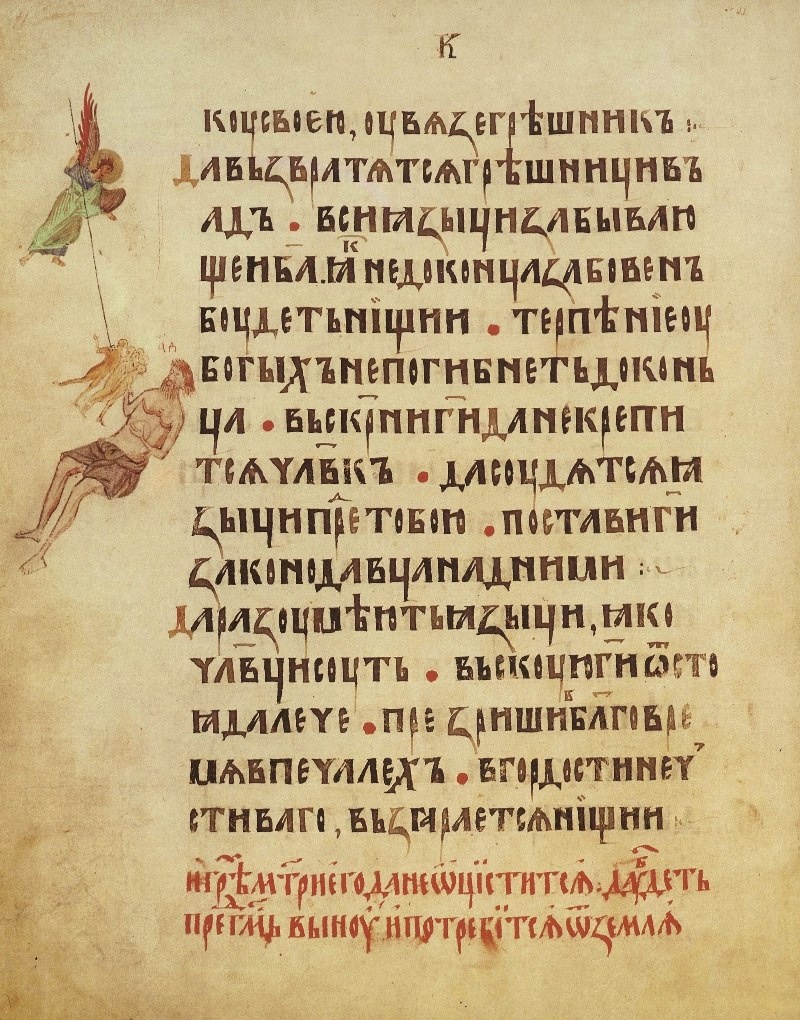 К
коусвоею, оувѧзегрѣшникъ :
Давьзвратѧтсѧгрѣшницивъ
адъ . всиꙗзыцизабываю
щеиб҃а. ꙗⷦ недоконцазабовенъ
боудетьнїщии . терпѣнїеоу
богыхънепогибнетьдоконь
ца . въскр҃ниг҃иданекрепи
тсѧчл҃вкъ . дасоудѧтсѧꙗ
зыципрⷣетобою . поставиг҃и
законодавцанадними :
Даразоумѣютьꙗзыци, ꙗко
чл҃вцисоуть . въскоуюг҃иѿсто
ꙗдалече . презришиⷡбл҃говре
мѧвпечалехъ . вгордостинеч
стиваго , възгараетсѧнїщии